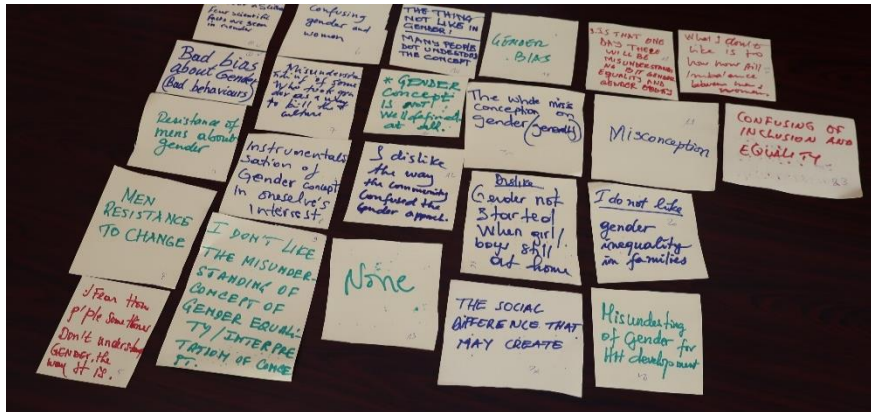 few scientific
facts are seen
in gender
Confusing
gender and
women
THE THING
NOT LIKE IN
GENDER!
MANY PEOPLE
DOT UNDESTORS
THE CONCEPT
GENDER
BIAS
IS THAT ONE
DAY THERE
WILL BE
MISUNDERSTA
EQUALITY AND
GENDER
What I don't
like is to
how
imbalance
between men &
women.
Bad bias
about Gender
(Bad behaviours)
Misundersta
of some
who took gen
as a way
to kill the
culture
* GENDER
Concept
is not
Well defined
at all.
The whole miss
conception on
gender (generally)
Misconception
CONFUSING OF
INCLUSION AND
EQUALITY
Resistance of
mens about
gender
Instrumentali
sation of
Gender concept
in oneselve's
Interest.
I dislike
the way
the community
confused the
Gender approch.
Dislike
Gender not
started
When girl/
boys still
at home
I do not like
gender
inequality
in families
MEN
RESISTANCE
TO CHANGE
I DON'T LIKE
THE MISUNDER-
STANDING OF
CONCEPT OF
GENDER EQUALI-
TY/INTERPRE
TATION OF CONCE
PT.
None
THE SOCIAL
DIFFERENCE THAT
MAY CREATE
Misundesting
of Gender for
HH development
I Fear how
p'ple sometimes
Don't understand
GENDER, the
way it is.